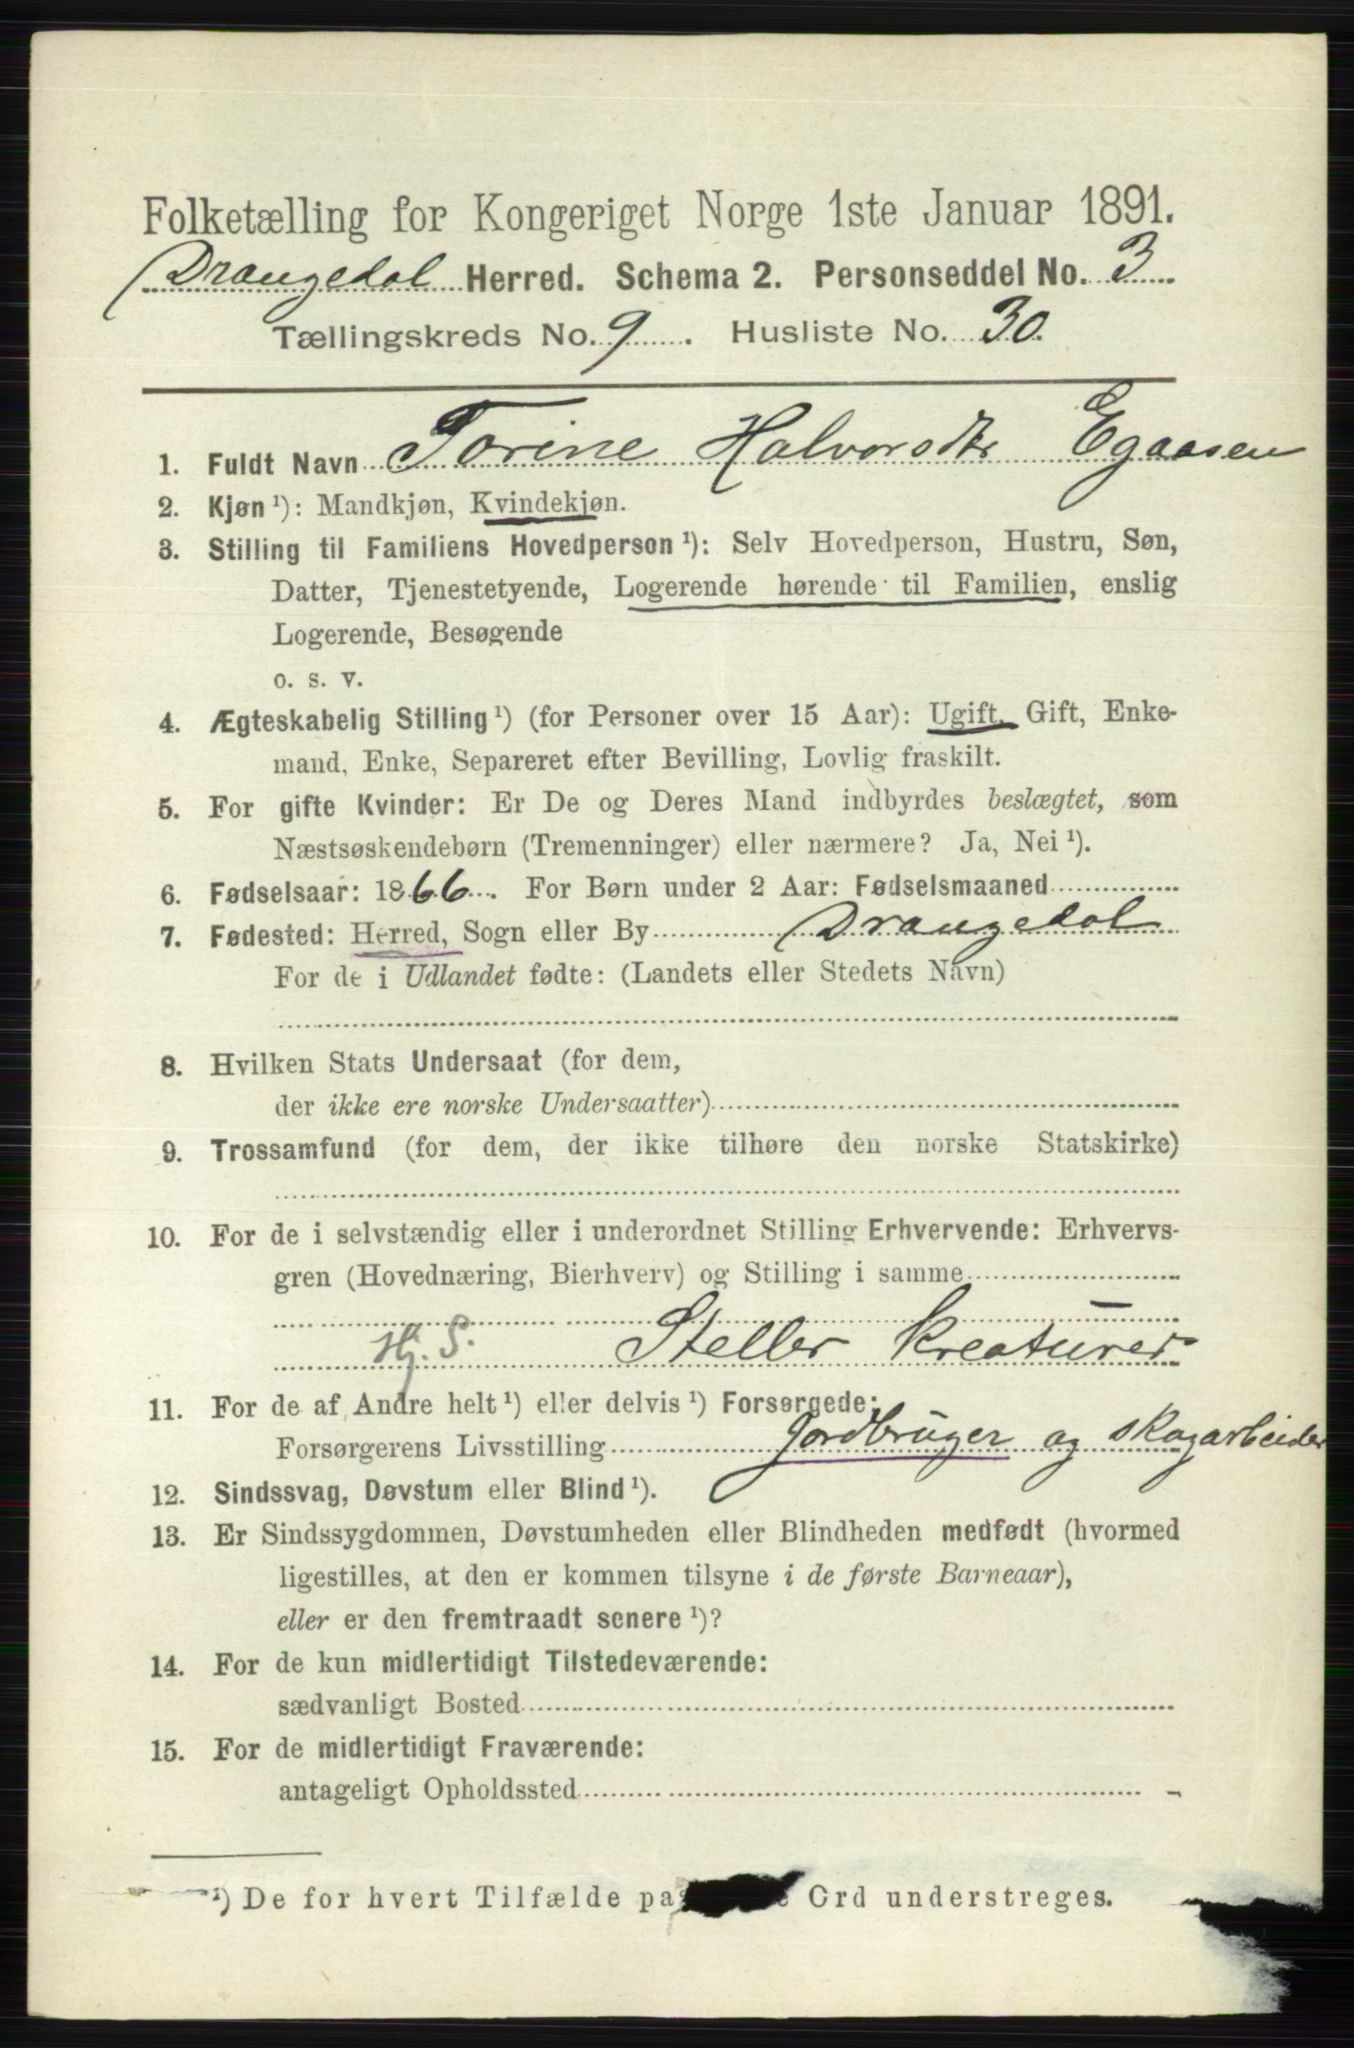 Folketælling for Kongeriget Norge 1ste Januar 1891.
Drangedal Herred. Schema 2. Personseddel No. 3
Tællingskreds No. 9. Husliste No. 30.
1. Fuldt Navn Torine Halvorsdtr Egaasen
2. Kjøn ¹): Mandkjøn, Kvindekjøn.
3. Stilling til Familiens Hovedperson ¹): Selv Hovedperson, Hustru, Søn,
Datter, Tjenestetyende, Logerende hørende til Familien, enslig
Logerende, Besøgende
o. s. v.
4. Ægteskabelig Stilling ¹) (for Personer over 15 Aar): Ugift, Gift, Enke-
mand, Enke, Separeret efter Bevilling, Lovlig fraskilt.
5. For gifte Kvinder: Er De og Deres Mand indbyrdes beslægtet, som
Næstsøskendebørn (Tremenninger) eller nærmere? Ja, Nei ¹).
6. Fødselsaar: 1866. For Børn under 2 Aar: Fødselsmaaned
7. Fødested: Herred, Sogn eller By Drangedal
For de i Udlandet fødte: (Landets eller Stedets Navn)
8. Hvilken Stats Undersaat (for dem,
der ikke ere norske Undersaatter)
9. Trossamfund (for dem, der ikke tilhøre den norske Statskirke)
10. For de i selvstændig eller i underordnet Stilling Erhvervende: Erhvervs-
gren (Hovednæring, Bierhverv) og Stilling i samme
Hj. S. Steller Kreaturer
11. For de af Andre helt ¹) eller delvis ¹) Forsørgede:
Forsørgerens Livsstilling Jordbruger og skogarbeider
12. Sindssvag, Døvstum eller Blind ¹).
13. Er Sindssygdommen, Døvstumheden eller Blindheden medfødt (hvormed
ligestilles, at den er kommen tilsyne i de første Barneaar),
eller er den fremtraadt senere ¹)?
14. For de kun midlertidigt Tilstedeværende:
sædvanligt Bosted
15. For de midlertidigt Fraværende:
antageligt Opholdssted
¹) De for hvert Tilfælde Ord understreges.